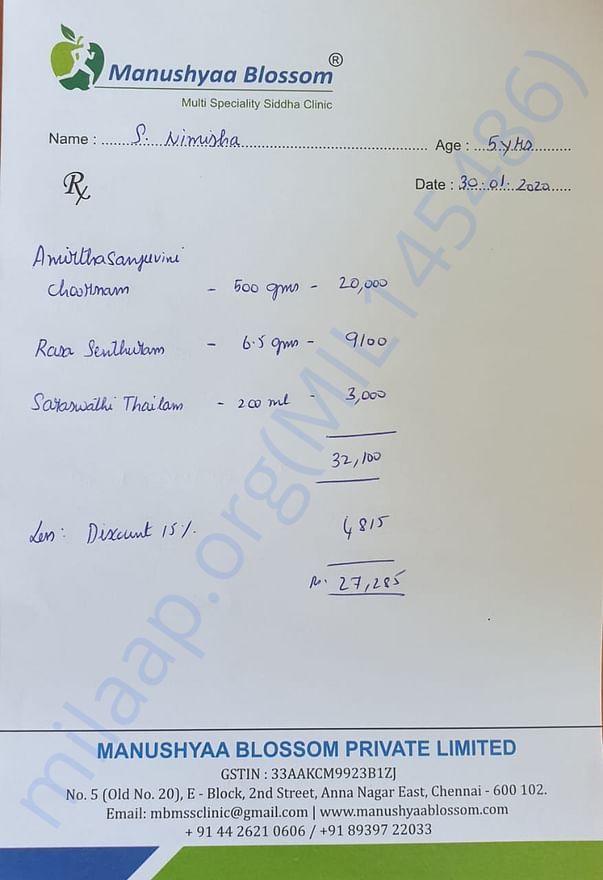 Manushyaa Blossom ®
Multi Speciality Siddha Clinic
Name : S. Nimisha Age : 5 yrs
Rx Date : 30.01.2020
Amirthasanjeevini
Choornam - 500 gms - 20,000
Rasa Senthuram - 6.5 gms - 9100
Saraswathi Thailam - 200 ml - 3,000
32,100
Less: Discount 15%. 4815
Rs. 27,285
MANUSHYAA BLOSSOM PRIVATE LIMITED
GSTIN : 33AAKCM9923B1ZJ
No. 5 (Old No. 20), E - Block, 2nd Street, Anna Nagar East, Chennai - 600 102.
Email: mbmssclinic@gmail.com | www.manushyaablossom.com
+ 91 44 2621 0606 / +91 89397 22033
milaap.org(MIL145486)